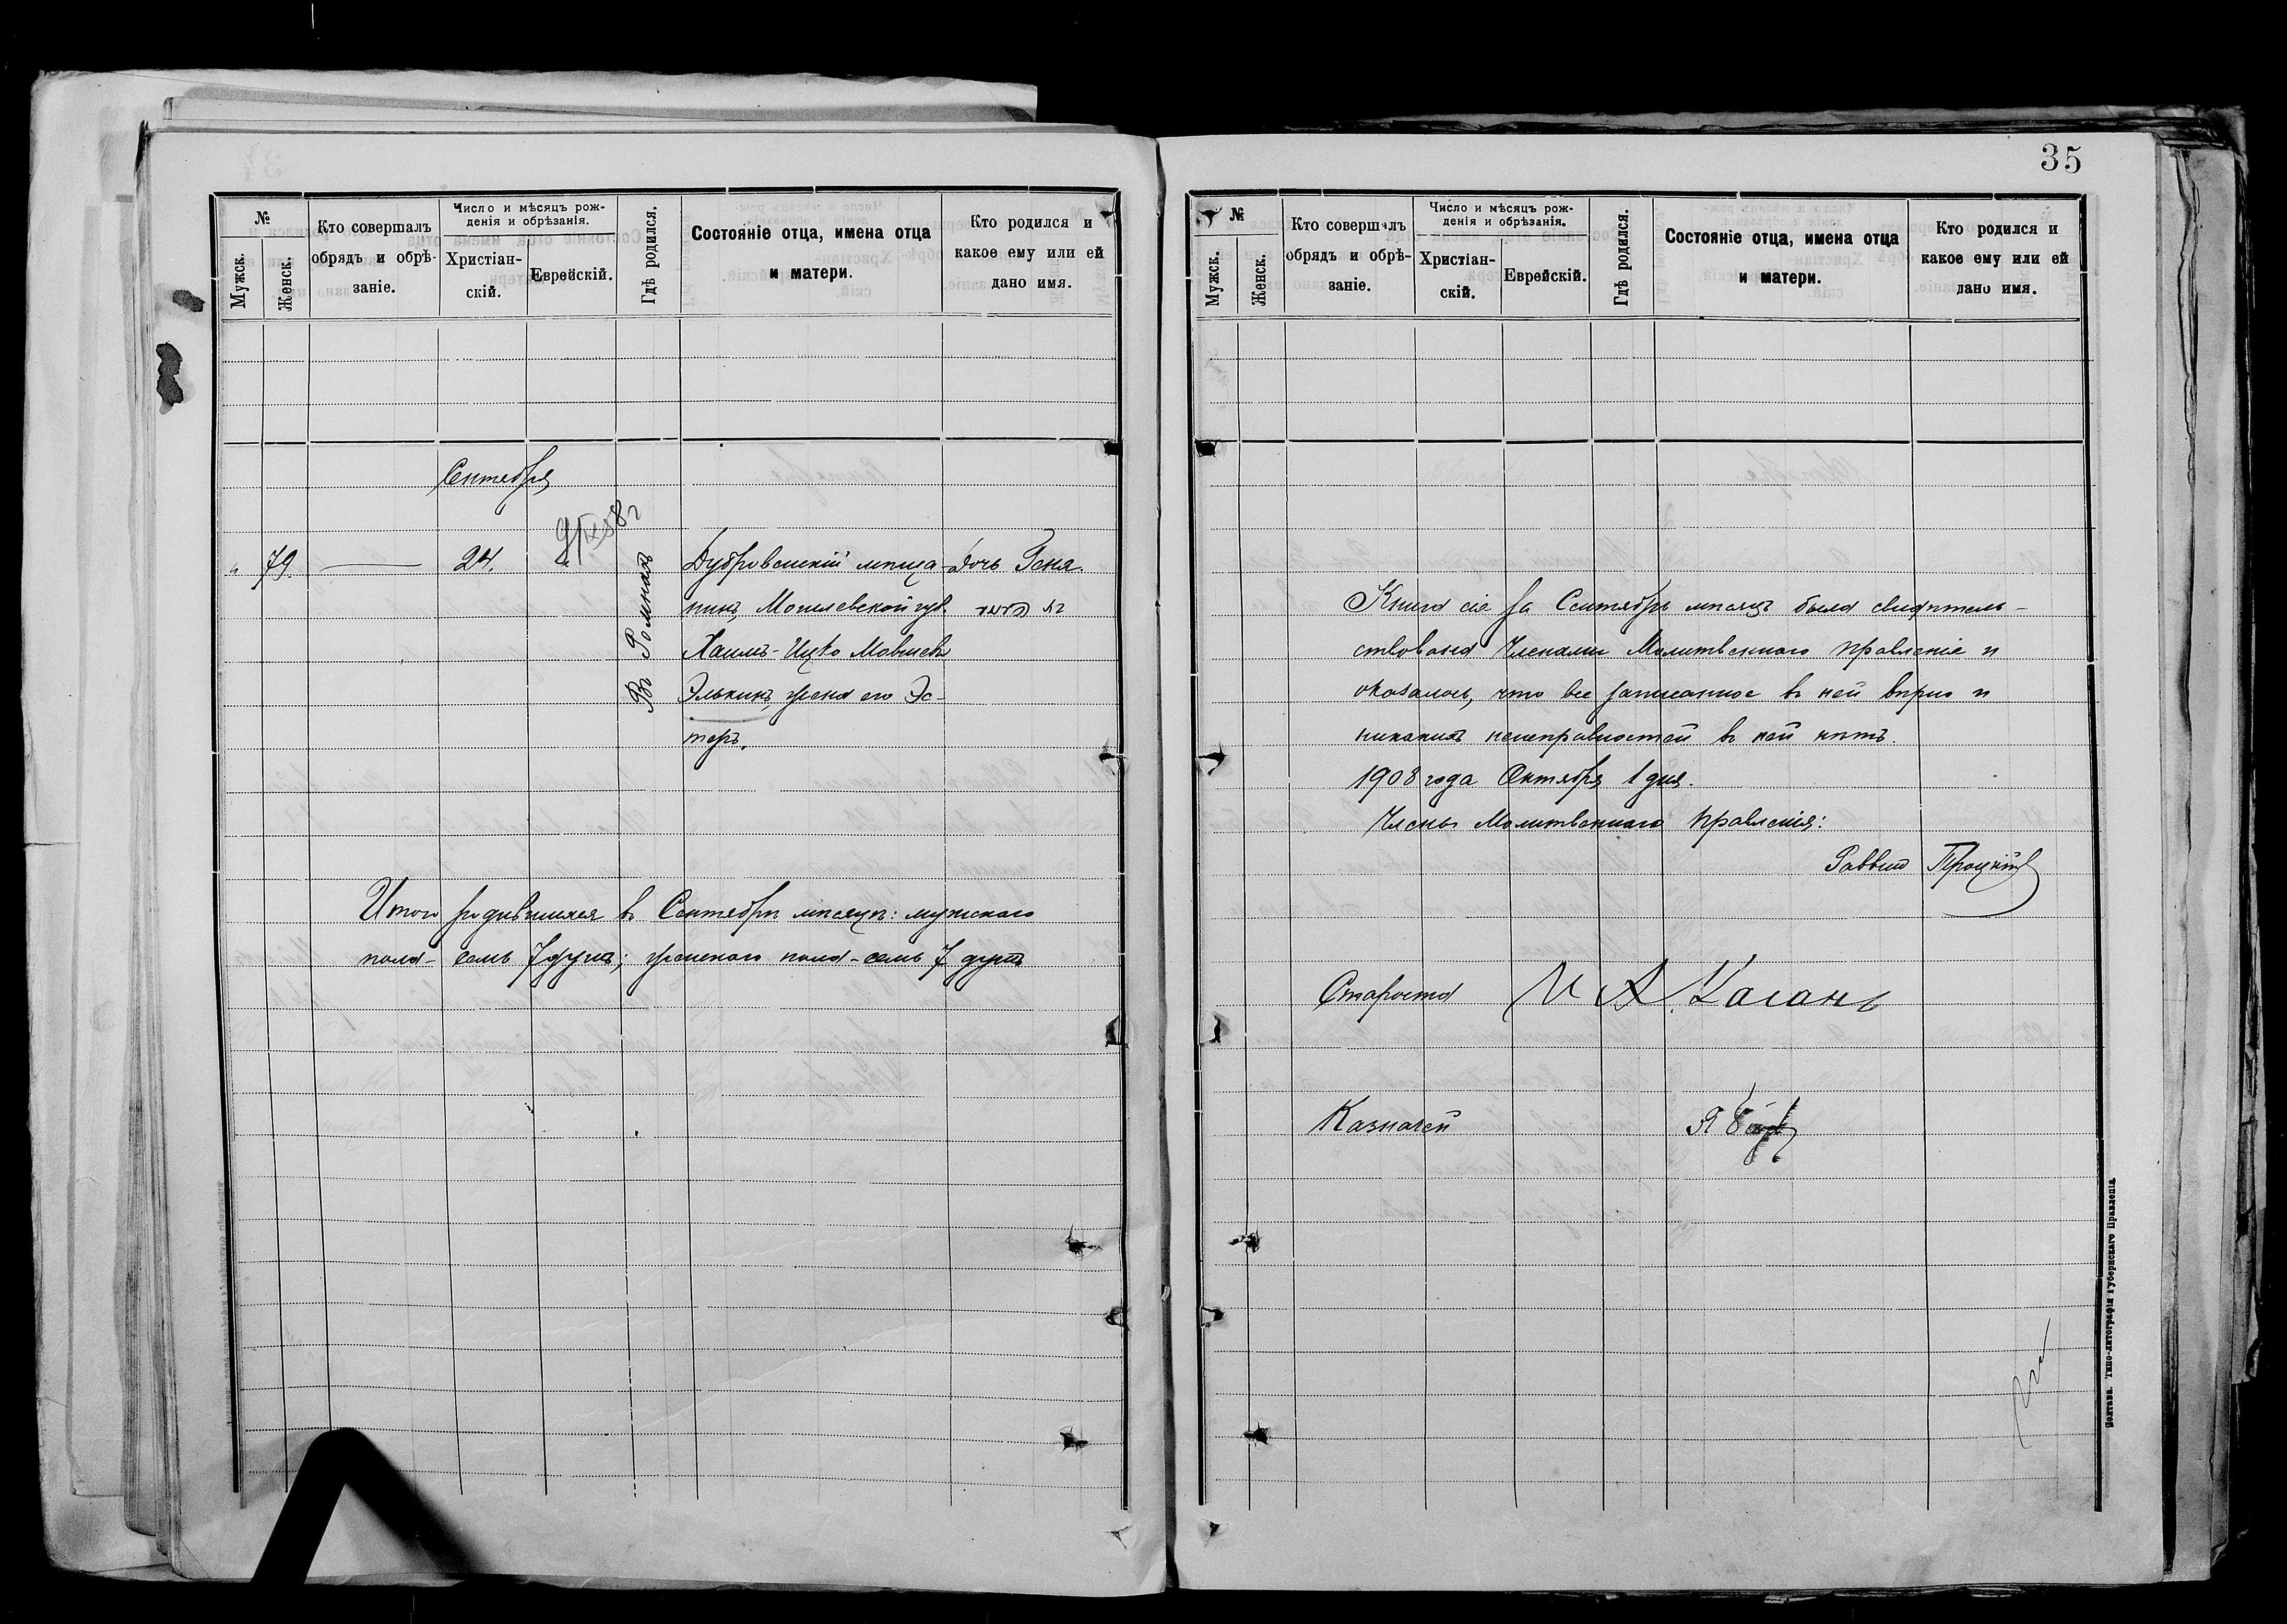 №
Мужск.
Женск.
Кто совершалъ
обрядъ и обрѣ-
заніе.
Число и мѣсяцъ рож-
денія и обрѣзанія.
Христіан-
скій.
Еврейскій.
Гдѣ родился.
Состояніе отца, имена отца
и матери.
Кто родился и
какое ему или ей
дано имя.
Сентября
79. 24.
Въ Ромнахъ
Дубровенскій мѣща-
нинъ, Могилевской губ.
Хаимъ-Ицко Мовшевъ
Элькинъ, жена его Эс-
теръ.
Дочь Геня.
Итого родившихся въ Сентябрѣ мѣсяцѣ: мужского
пола- семь 7 душъ; женского пола- семь 7 душъ
35
№
Мужск.
Женск.
Кто совершалъ
обрядъ и обрѣ-
заніе.
Число и мѣсяцъ рож-
денія и обрѣзанія.
Христіан-
скій.
Еврейскій.
Гдѣ родился.
Состояніе отца, имена отца
и матери.
Кто родился и
какое ему или ей
дано имя.
Книга сія за Сентябрь мѣсяцъ была свидѣтель-
ствована Членами Молитвенного Правленія и
оказалось, что все записанное въ ней вѣрно и
никакихъ неисправностей въ ней нѣтъ.
1908 года Октября 1 дня.
Члены Молитвенного Правленія:
Раввин
Староста И А. Каганъ
Казначей
Полтава. Типо-литографія Губернскаго Правленія.